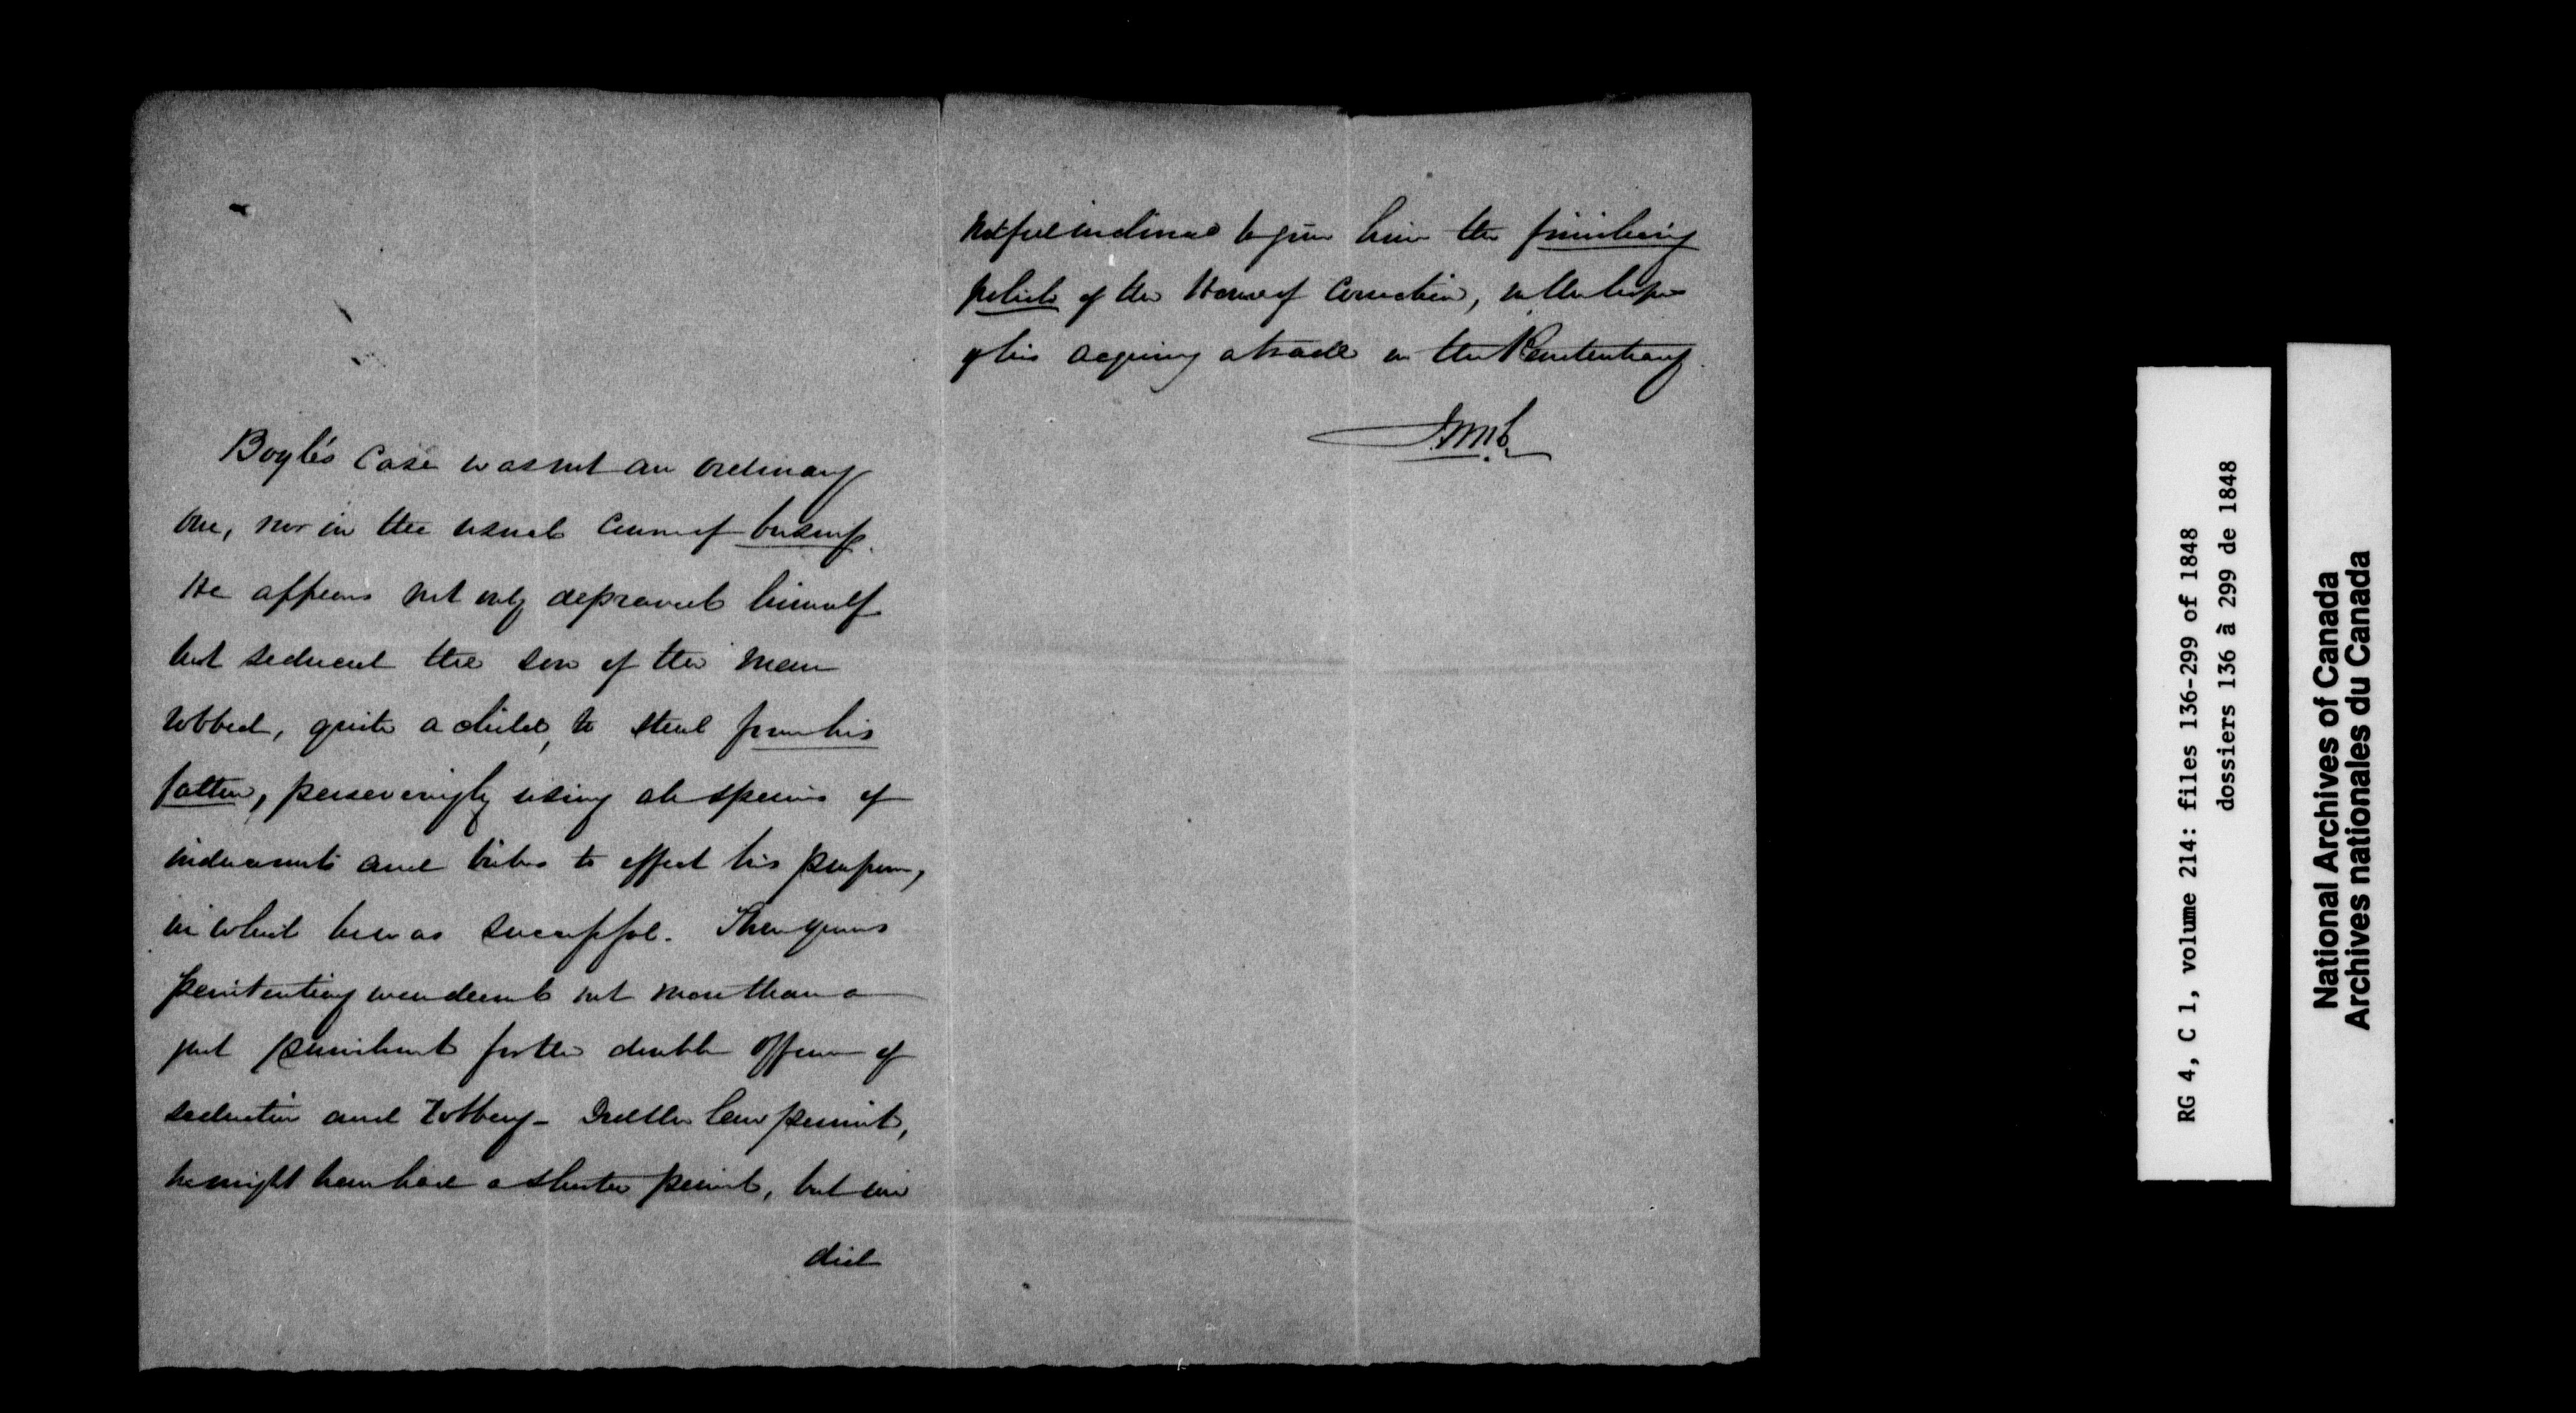 Boyle's case was not an ordinary
one, nor in the usual course of business.
He appears not only depraved himself
but seduced the son of the man
robbed, quite a child, to steal from his
father, perseveringly using all species of
inducements and bribes to effect his purpose,
in which he was successful. Three years
penitentiary were deemed not more than a
just punishment for the double offence of
seduction and robbery - Did the law permit,
he might have had a shorter period, but we
did
not feel inclined to give him the finishing
polish of the House of Correction, in the hope
of his acquiring a trade in the Penitentiary.
RG 4, C 1, volume 214: files 136-299 of 1848
dossiers 136 à 299 de 1848
National Archives of Canada
Archives nationales du Canada